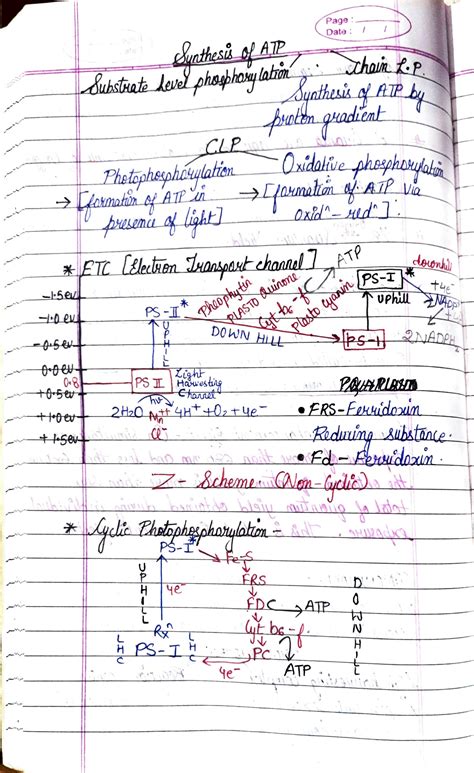 Page :
Date : / /
Synthesis of ATP
Substrate level phosphorylation
Chain L.P.
Synthesis of ATP by
proton gradient
CLP
Photophosphorylation
→ [formation of ATP in
presence of light]
Oxidative phosphorylation
→ [formation of ATP via
oxidⁿ - redⁿ]
* ETC [Electron Transport channel]
-1.5ev
-1.0 ev
-0.5ev
0.0ev
0.8
+0.5ev
+1.0 ev
+1.5ev
PS-II*
UPHILL
PS II
Light
Harvesting
Channel
hv
2H₂O Mn⁺⁺ 4H⁺ + O₂ + 4e⁻
Cl⁻
Pheophytin
PLASTO Quinone
Cyt b6-f
Plasto cyanin
ATP
DOWN HILL
PS-I
uphill
PS-I*
downhill
+4e⁻
2NADPH₂
• FRS-Ferridoxin
Reducing substance.
• Fd - Ferridoxin.
Z - Scheme (Non-Cyclic)
* Cyclic Photophosphorylation -
PS-I*
Fe-S
FRS
FDC → ATP
Cyt b6-f.
PC
ATP
UPHILL
4e⁻
Rxⁿ
LHC PS-I LHC
4e⁻
DOWNHILL